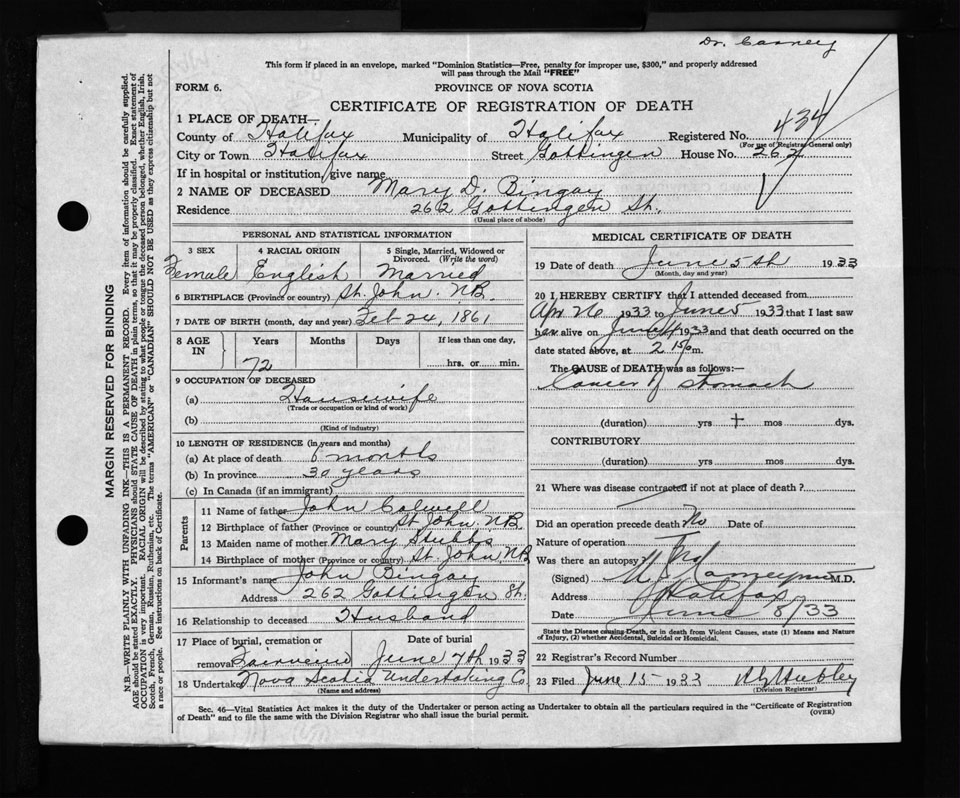 Dr. Carney
This form if placed in an envelope, marked "Dominion Statistics—Free, penalty for improper use, $300," and properly addressed
will pass through the Mail "FREE"
FORM 6.
PROVINCE OF NOVA SCOTIA
CERTIFICATE OF REGISTRATION OF DEATH
1 PLACE OF DEATH—
County of Halifax Municipality of Halifax Registered No. 434
(For use of Registrar General only)
City or Town Halifax Street Gottingen House No. 262
If in hospital or institution, give name
2 NAME OF DECEASED Mary D. Bingay
Residence 262 Gottingen St.
(Usual place of abode)
PERSONAL AND STATISTICAL INFORMATION
3 SEX 4 RACIAL ORIGIN 5 Single, Married, Widowed or Divorced. (Write the word)
Female English Married
6 BIRTHPLACE (Province or country) St. John. N.B.
7 DATE OF BIRTH (month, day and year) Feb 24, 1861
8 AGE IN Years Months Days If less than one day,
72 hrs. or min.
9 OCCUPATION OF DECEASED
(a) Housewife
(Trade or occupation or kind of work)
(b)
(Kind of industry)
10 LENGTH OF RESIDENCE (in years and months)
(a) At place of death 6 months
(b) In province 30 years
(c) In Canada (if an immigrant)
Parents
11 Name of father John Colwell
12 Birthplace of father (Province or country) St John. N.B.
13 Maiden name of mother Mary Stubbs
14 Birthplace of mother (Province or country) St. John, N.B
15 Informant's name John Bingay
Address 262 Gottingen St.
16 Relationship to deceased Husband
17 Place of burial, cremation or removal Fairview Date of burial June 7th 1933
18 Undertaker Nova Scotia Undertaking Co
(Name and address)
MEDICAL CERTIFICATE OF DEATH
19 Date of death June 5th 1933
(Month, day and year)
20 I HEREBY CERTIFY that I attended deceased from
Apr 26 1933 to June 5 1933 that I last saw
her alive on June 1933 and that death occurred on
date stated above, at 2 15 p m.
The CAUSE OF DEATH was as follows:—
Cancer of stomach
(duration) yrs mos dys.
CONTRIBUTORY
(duration) yrs. mos. dys.
21 Where was disease contracted if not at place of death?
Did an operation precede death No Date of
Nature of operation
Was there an autopsy No
(Signed) M.D.
Address Halifax
Date June 8/33
State the Disease causing Death, or in death from Violent Causes, state (1) Means and Nature
of Injury, (2) whether Accidental, Suicidal or Homicidal.
22 Registrar's Record Number
23 Filed June 15 1933
(Division Registrar)
Sec. 46—Vital Statistics Act makes it the duty of the Undertaker or person acting as Undertaker to obtain all the particulars required in the "Certificate of Registration
of Death" and to file the same with the Division Registrar who shall issue the burial permit.
(OVER)
MARGIN RESERVED FOR BINDING
N.B.—WRITE PLAINLY WITH UNFADING INK—THIS IS A PERMANENT RECORD. Every item of information should be carefully supplied.
AGE should be stated EXACTLY. PHYSICIANS should STATE CAUSE OF DEATH in plain terms, so that it may be properly classified. Exact statement of
OCCUPATION is very important. RACIAL ORIGIN will be described by stating to what people or tongue the deceased person belonged, whether English, Irish,
Scotch, French, German, Russian, Ruthenian, etc. The terms "AMERICAN" or "CANADIAN" SHOULD NOT BE USED as they express citizenship but not
a race or people. See instructions on back of Certificate.